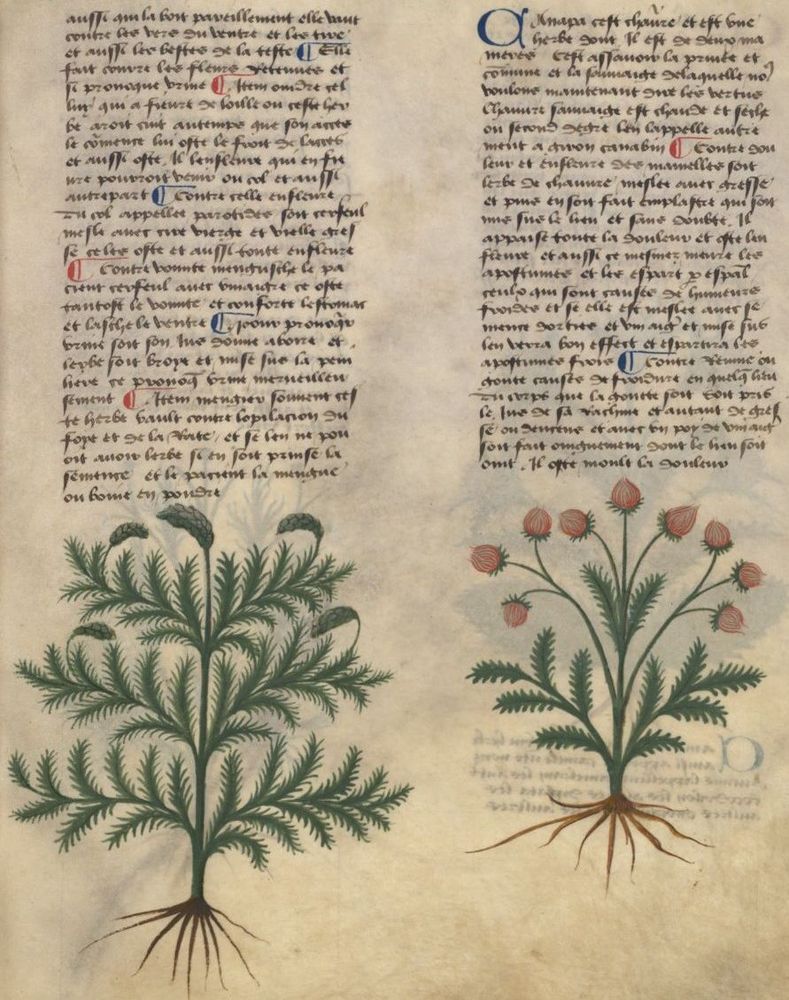 aussi qui la boit pareillement elle vault
contre les vers du ventre et les tire
et aussi les bestes de la teste ¶ Elle
fait courre les fleurs Retenues et
si prouoque vrine ¶ Item oindre cel
luy qui a fieure de
be aroit cuit autemps que son acces
le cõmence luy oste le froit de lacces
et aussi oste. Il lenfleure qui en fie
ure pourroit venir ou col et aussi
autrepart ¶ Contre celle enfleure
du col appellee parotides soit cerfeul
mesle auec cire vierge et vielle gres
se ce les oste et aussi toute enfleure
¶ Contre vomite mengusche le pa
cient cerfeul auec vinaigre ce oste
tantost le vomite et conforte lestomac
et lasche le ventre ¶ pour prouoqr
vrine soit son Jus donne aboire et
lerbe soit broye et mise sus la pein
liere ce prouoq vrine merueilleu
sement ¶ Item mengier souuent ces
te herbe vault contre lopilacion du
foye et de la Rate, et se len ne peu
oit auoir lerbe si en soit prinse la
semence et le pacient la mengue
ou boiue en poudre
Canapa cest chãure et est vne
herbe dont Il est de deux ma
nieres Cest assauoir la priuee et
cõmune et la sauuaige delaquelle no9
voulons maintenant dire les vertus
Chanure sauuaige est chaude et seche
ou second degre len lappelle autre
ment agrion canabin ¶ Contre dou
leur et enfleure des mamelles soit
lerbe de chanure meslee auec gresse
et puis en soit fait emplastre qui soit
mis sus le lieu et sans doubte. Il
appaise toute la douleur et oste len
fleure et aussi ce mesmez meure les
apostumes et les espart p espãl
ceulx qui sont causez de humeurs
froides et se elle est meslee auec se
mence dorties et vin aig et mise sus
len verra bon effect et espartira les
apostumes frois ¶ Contre Reume ou
goute causes de froidure en quelq lieu
du corps que la goute soit soit pris
le Jus de sa Rachine et autant de gres
se ou dencens et auec vn poy de vin aig
soit fait oinguement dont le lieu soit
oint. Il oste moult la douleur